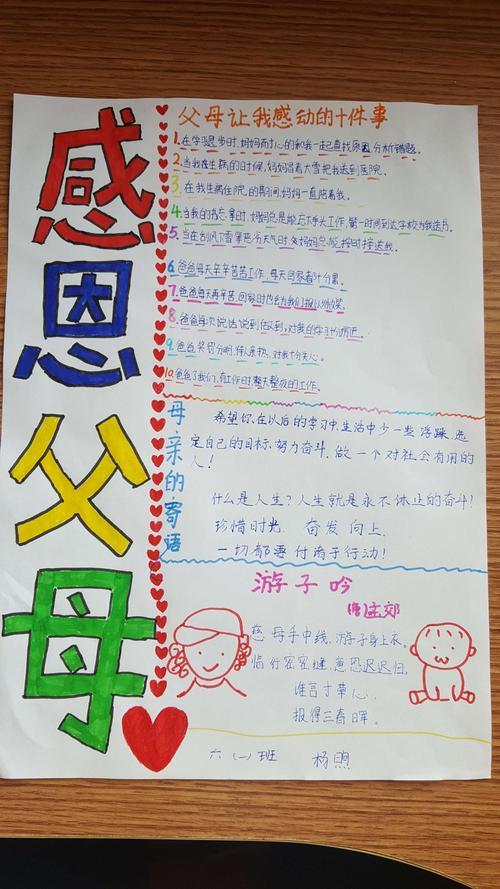 感恩父母
父母让我感动的十件事
1.在学习退步时,妈妈耐心的和我一起查找原因,分析错题。
2.当我在生病的时候,妈妈冒着大雪把我送到医院。
3.在我生病住院的期间,妈妈一直陪着我。
4.当我的忘拿时,妈妈总是能放下手头工作,第一时间到达学校为我送
5.当在刮风下雪等恶劣天气时,妈妈总能按时接送我。
6.爸爸每天辛辛苦苦工作,每天回家看十分累。
7.爸爸每天再辛苦,回家时也会为我们报以微笑。
8.爸爸每次说话说到做到,对我的学习
9.爸爸奖罚分明,待人亲热,对我十分关心。
10.爸爸为了我们,在工作时整天整夜的工作。
母亲的寄语
希望你,在以后的学习中,生活中少一些浮躁,选
定自己的目标,努力奋斗,做一个对社会有用的
人!
什么是人生?人生就是永不休止的奋斗!
珍惜时光 奋发向上,
一切都要付诸于行动!
游子吟
(唐)孟郊
慈母手中线,游子身上衣。
临行密密缝,意恐迟迟归。
谁言寸草心,
报得三春晖。
六(一)班 杨煦